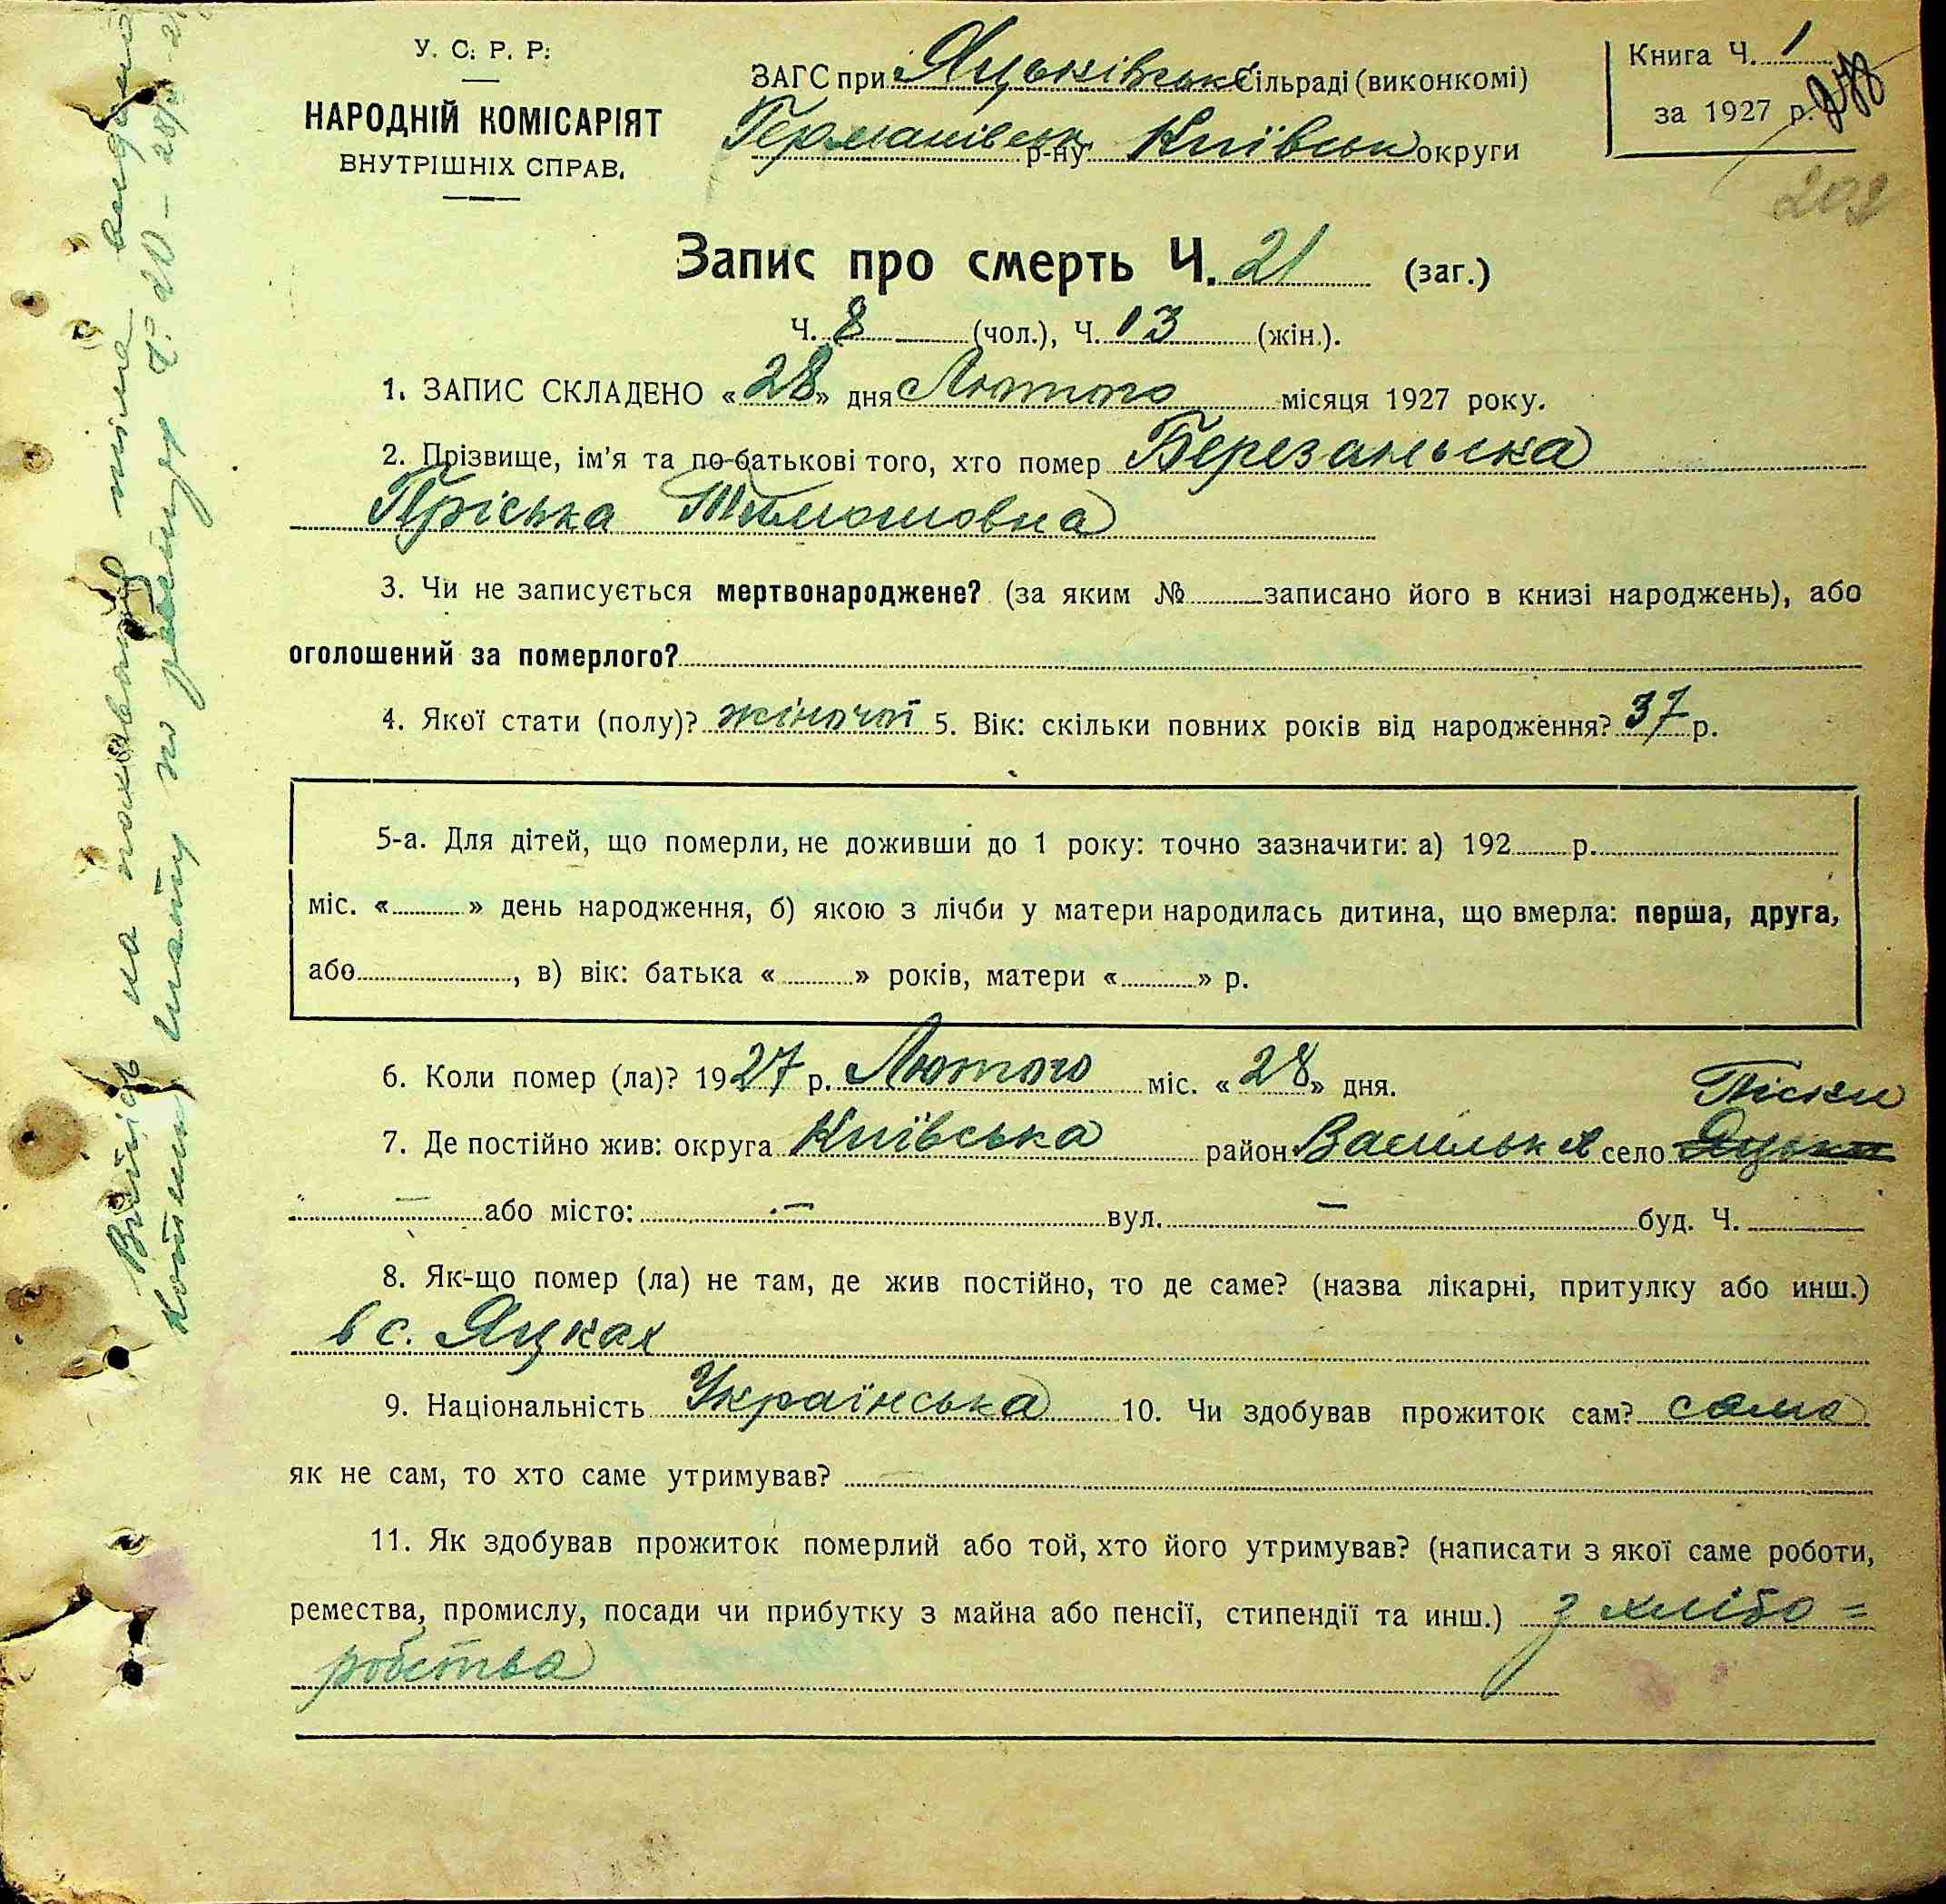 У. С. Р. Р.
НАРОДНІЙ КОМІСАРІЯТ
ВНУТРІШНІХ СПРАВ.
ЗАГС при Яцьківські Сільраді (виконкомі)
Германівськ р-ну Київськ округи
Книга Ч. 1
за 1927 р.
202
Запис про смерть Ч. 21 (заг.)
Ч. 8 (чол.), Ч. 13 (жін.).
1. ЗАПИС СКЛАДЕНО «28» дня Лютого місяця 1927 року.
2. Прізвище, ім'я та по-батькові того, хто помер Березанська
Пріська Тимошовна
3. Чи не записується мертвонароджене? (за яким № записано його в книзі народжень), або
оголошений за померлого?
4. Якої стати (полу)? жіночої 5. Вік: скільки повних років від народження? 37 р.
5-а. Для дітей, що померли, не доживши до 1 року: точно зазначити: а) 192 р.
міс. « » день народження, б) якою з лічби у матери народилась дитина, що вмерла: перша, друга,
або , в) вік: батька « » років, матери « » р.
6. Коли помер (ла)? 1927 р. Лютого міс. «28» дня.
Піски
7. Де постійно жив: округа Київська район Васильк село Яцьки
або місто: — вул. — буд. Ч.
8. Як-що помер (ла) не там, де жив постійно, то де саме? (назва лікарні, притулку або инш.)
в с. Яцках
9. Національність Українська 10. Чи здобував прожиток сам? сама
як не сам, то хто саме утримував?
11. Як здобував прожиток померлий або той, хто його утримував? (написати з якої саме роботи,
ремества, промислу, посади чи прибутку з майна або пенсії, стипендії та инш.) з хлібо=
робства
Витяг на поховання тіла видано